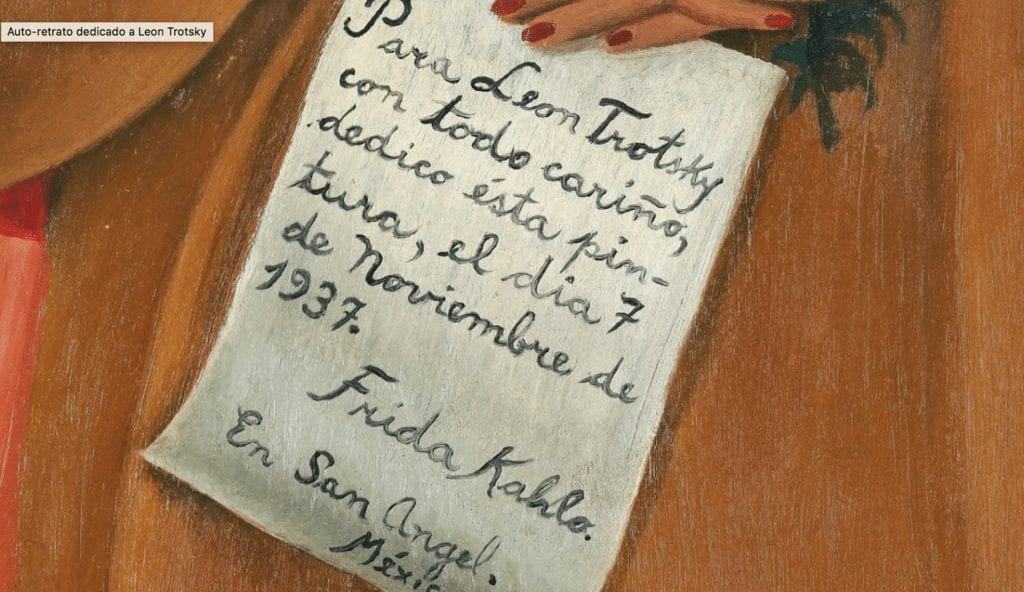 Auto-retrato dedicado a Leon Trotsky
Para Leon Trotsky
con todo cariño,
dedico ésta pin-
tura, el dia 7
de Noviembre de
1937.
Frida Kahlo.
En San Angel.